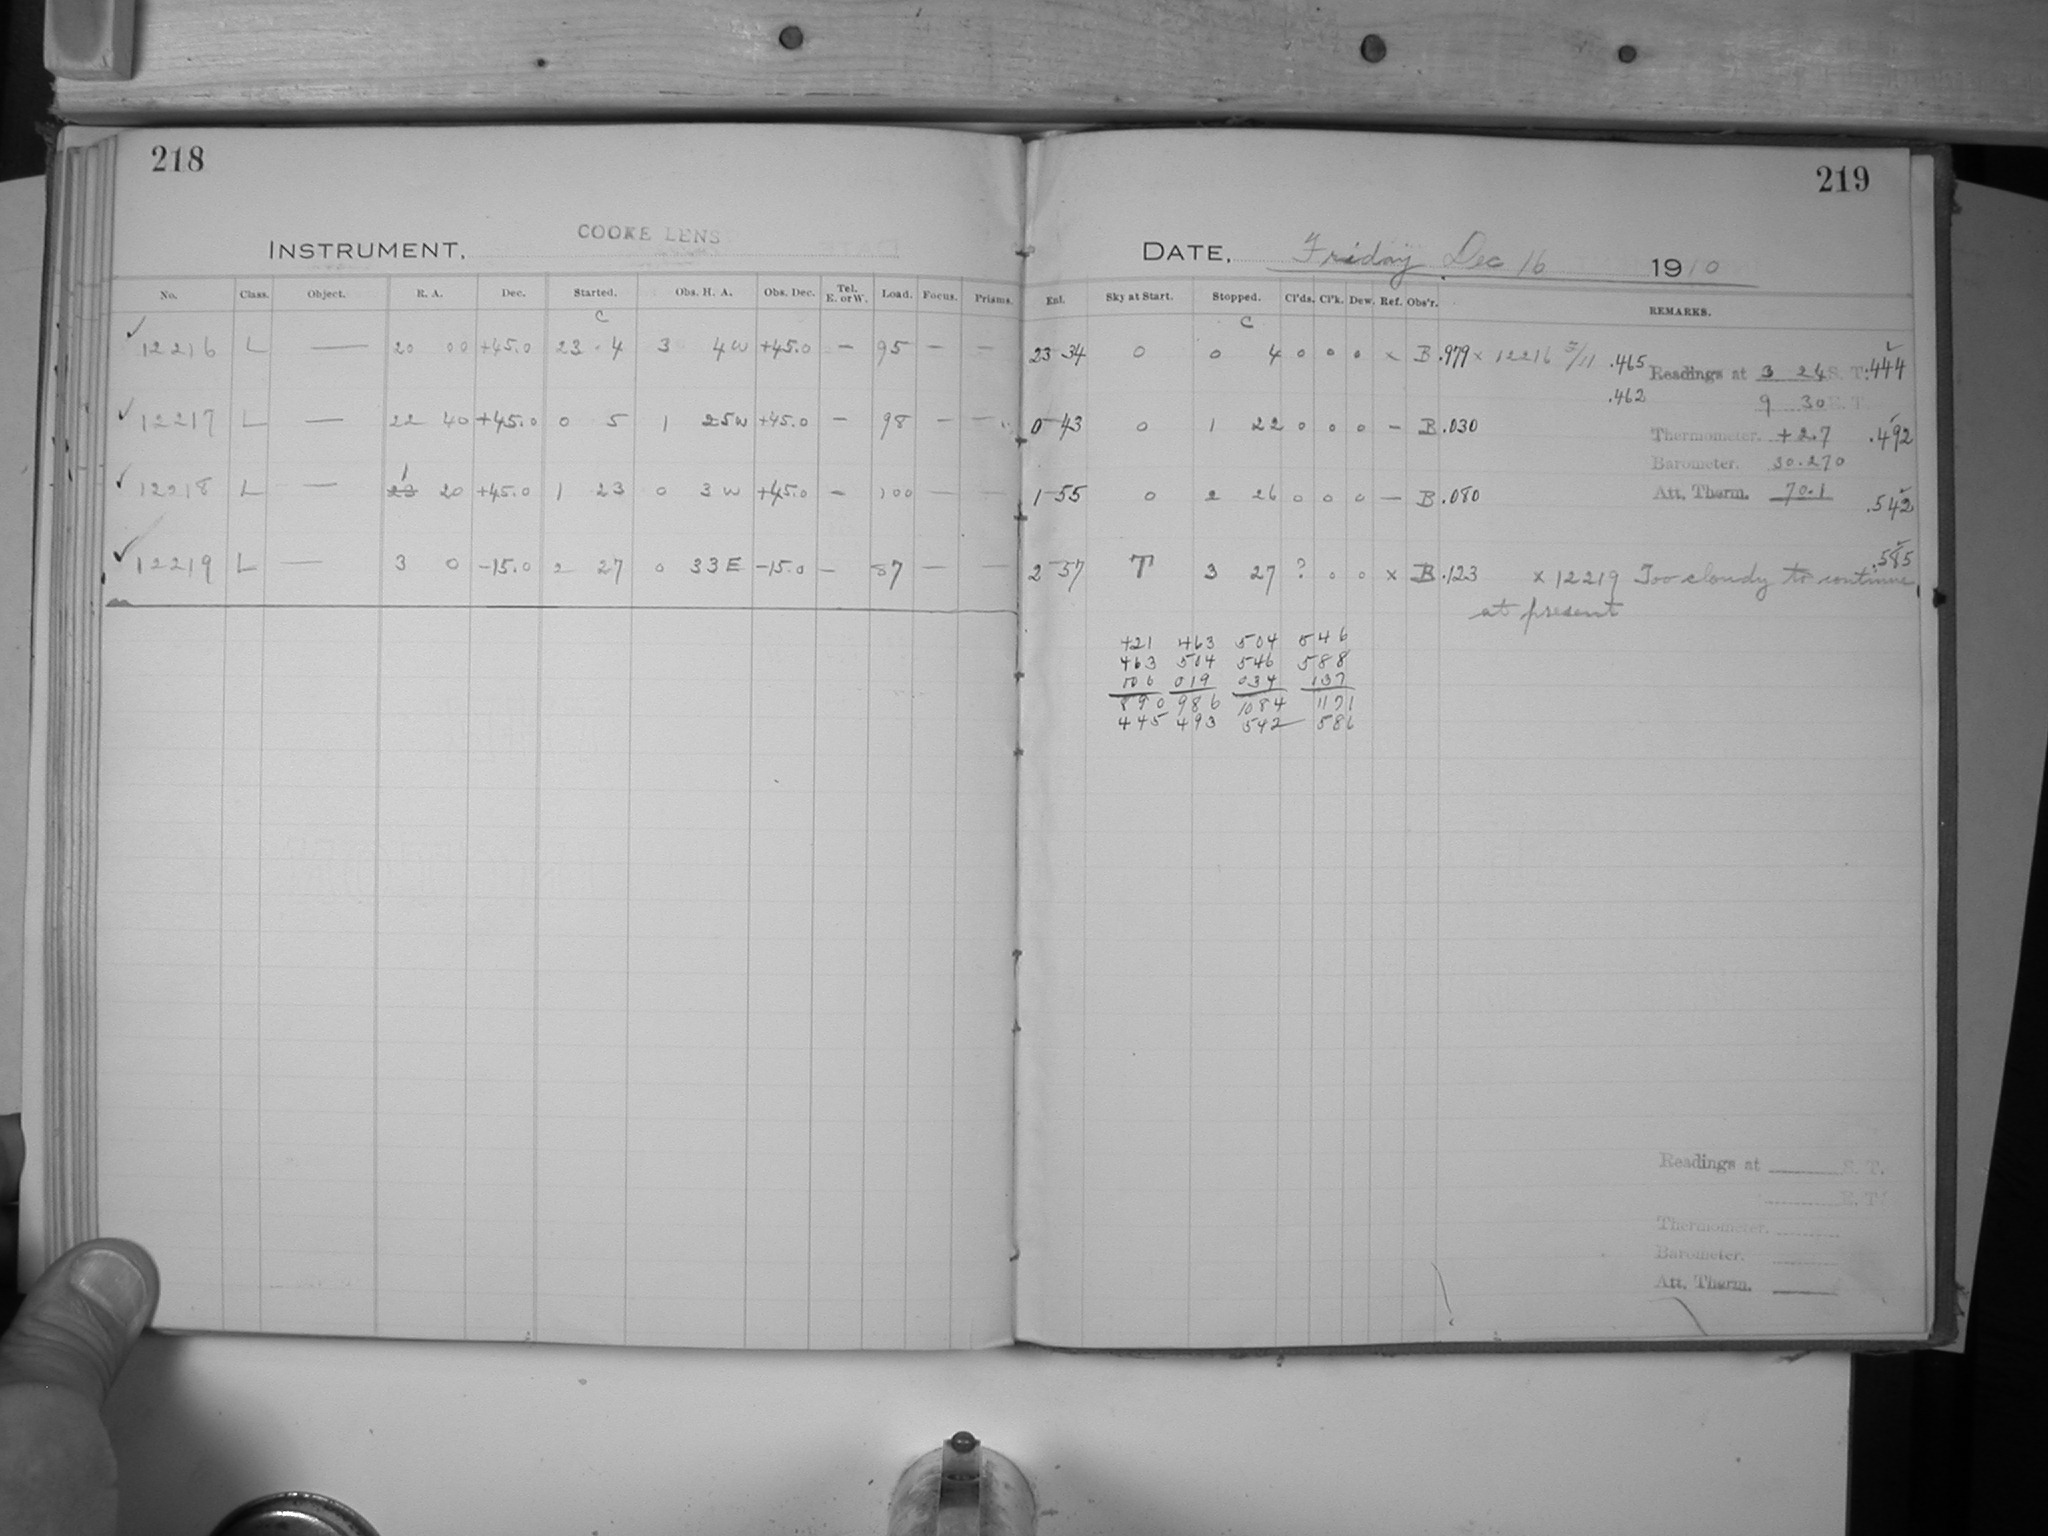 218
COOKE LENS
INSTRUMENT,
No. Class. Object. R. A. Dec. Started. Obs. H. A. Obs. Dec. Tel. E. or W. Load. Focus. Prisms.
C
✓ 12216 L — 20 00 +45.0 23 4 3 4W +45.0 — 95 — —
✓ 12217 L — 22 40 +45.0 0 5 1 25W +45.0 — 98 — —
1
✓ 12218 L — 23 20 +45.0 1 23 0 3W +45.0 — 100 — —
✓ 12219 L — 3 0 -15.0 2 27 0 33E -15.0 — 87 — —
219
DATE, Friday Dec 16 1910
Enl. Sky at Start. Stopped. Cl'ds. Cl'k. Dew. Ref. Obs'r. REMARKS.
C
23 34 0 0 4 0 0 0 x B .979 x 12216 .465
Readings at 3 24 S. T. .444
.462
9 30 E. T.
0 43 0 1 22 0 0 0 — B .030
Thermometer. +2.7 .492
Barometer. 30.270
1 55 0 2 26 0 0 0 — B .080
Att. Therm. 70.1 .542
.585
2 57 T 3 27 ? 0 0 x B .123 x 12219 Too cloudy to continue
at present
421 463 504 546
463 504 546 588
106 019 034 137
890 986 1084 1171
445 493 542 586
Readings at S. T.
E. T.
Thermometer.
Barometer.
Att. Therm.